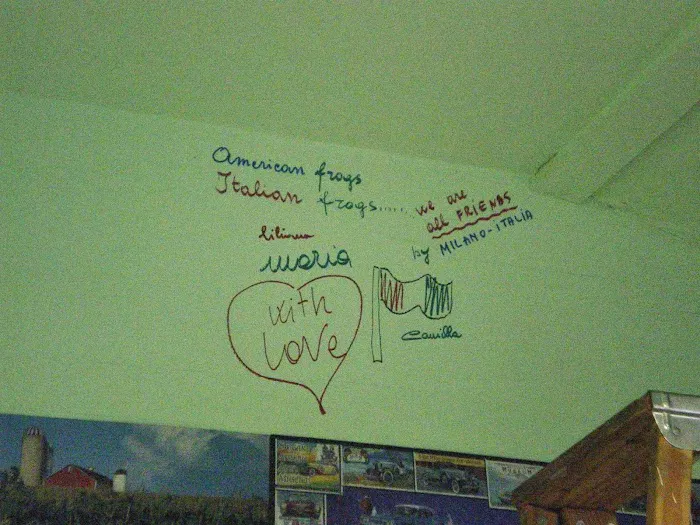 American frogs
Italian frogs..... we are
all FRIENDS
by MILANO-ITALIA
maria
with
LOVE
Camilla